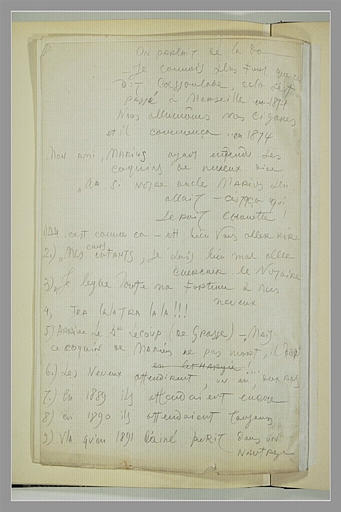 On parlait de la
— Je connais plus fort que ça
dit Cassoulade, cela s'est
passé à Marseille en 1874
Nous allumâmes nos cigares
et il commença en 1874
Mon ami, Marius ayant entendu ses
coquins de neveux dire
Ah Si notre oncle Marius
allait
serait chouette !
c'est comme ça — eh bien vous allez rire
2) Mes enfants, je suis bien mal allez
le Notaire
3) Je lègue toute ma fortune à mes
neveux
4, Tra la la tra la la !!!
5) Arrive le Dr Lecoup (de Grasse) — Mais
ce coquin de Marius ne pas mort, il
en léthargie !...
6) Les Neveux attendirent, un an, deux ans
7) En 1889 ils attendaient encore
8) en 1890 ils attendaient toujours
9) V'là qu'en 1891 l'aîné périt dans un
Naufrage